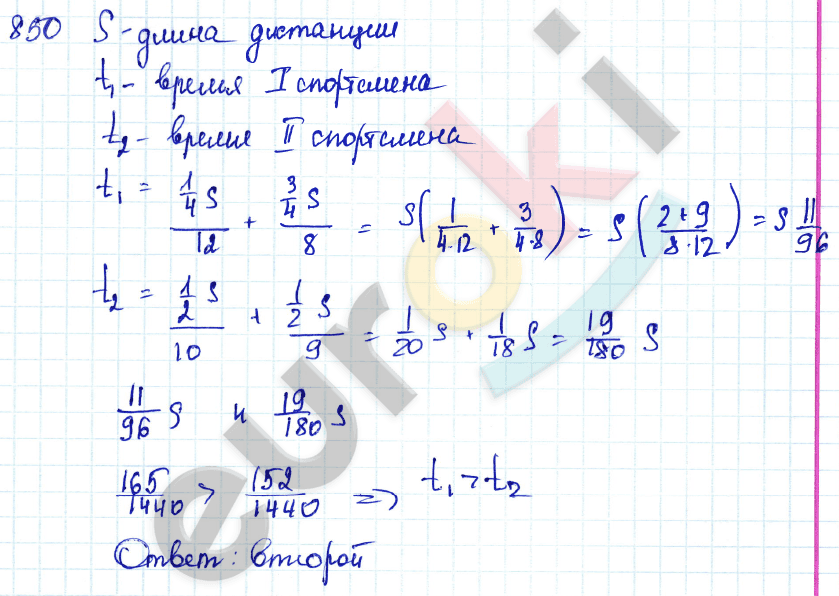 850 S - длина дистанции
t₁ - время I спортсмена
t₂ - время II спортсмена
t₁ = (1/4 S)/12 + (3/4 S)/8 = S(1/(4·12) + 3/(4·8)) = S((2+9)/(8·12)) = S 11/96
t₂ = (1/2 S)/10 + (1/2 S)/9 = 1/20 S + 1/18 S = 19/180 S
11/96 S и 19/180 S
165/1440 > 152/1440 => t₁ > t₂
Ответ: второй
euroki